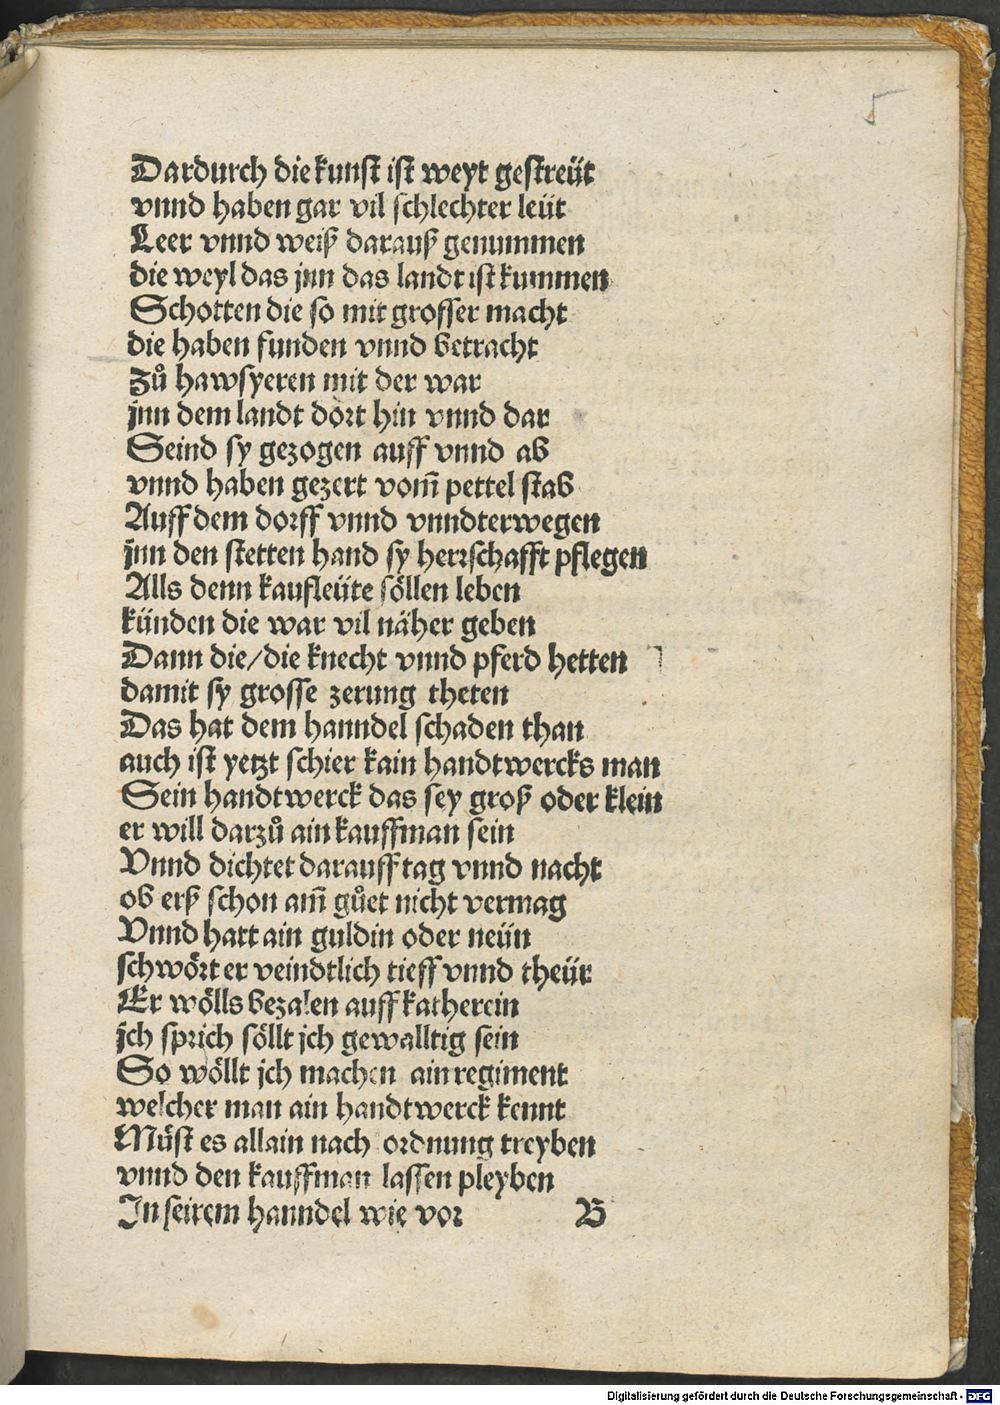 5
Dardurch die kunst ist weyt gestreüt
vnnd haben gar vil schlechter leüt
Leer vnnd weiß darauß genummen
die weyl das jnn das landt ist kummen
Schotten die so mit grosser macht
die haben funden vnnd betracht
Zů hawsyeren mit der war
jnn dem landt dort hin vnnd dar
Seind sy gezogen auff vnnd ab
vnnd haben gezert vom̄ pettel stab
Auff dem dorff vnnd vnndterwegen
jnn den stetten hand sy herrschafft pflegen
Alls denn kaufleüte söllen leben
künden die war vil näher geben
Dann die/die knecht vnnd pferd hetten
damit sy grosse zerung theten
Das hat dem hanndel schaden than
auch ist yetzt schier kain handtwercks man
Sein handtwerck das sey groß oder klein
er will darzů ain kauffman sein
Vnnd dichtet darauff tag vnnd nacht
ob erß schon am̄ gůet nicht vermag
Vnnd hatt ain guldin oder neün
schwört er veindtlich tieff vnnd theür
Er wölls bezalen auff katherein
jch sprich söllt jch gewalltig sein
So wöllt jch machen ain regiment
welcher man ain handtwerck kennt
Můst es allain nach ordnung treyben
vnnd den kauffman lassen pleyben
In seirem hanndel wie vor B
Digitalisierung gefördert durch die Deutsche Forschungsgemeinschaft - DFG